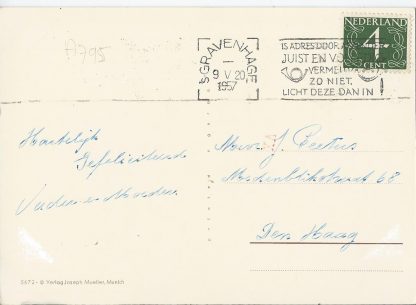 A795
'SGRAVENHAGE
9 V 20
1957
IS ADRES DOOR
JUIST EN VO
VERME
ZO NIET,
LICHT DEZE DAN IN
NEDERLAND
4
CENT
Hartelijk
Gefeliciteerd
Vader en Moeder
Mevr. J.
68
Den Haag
5672 - © Verlag Joseph Mueller, Munich